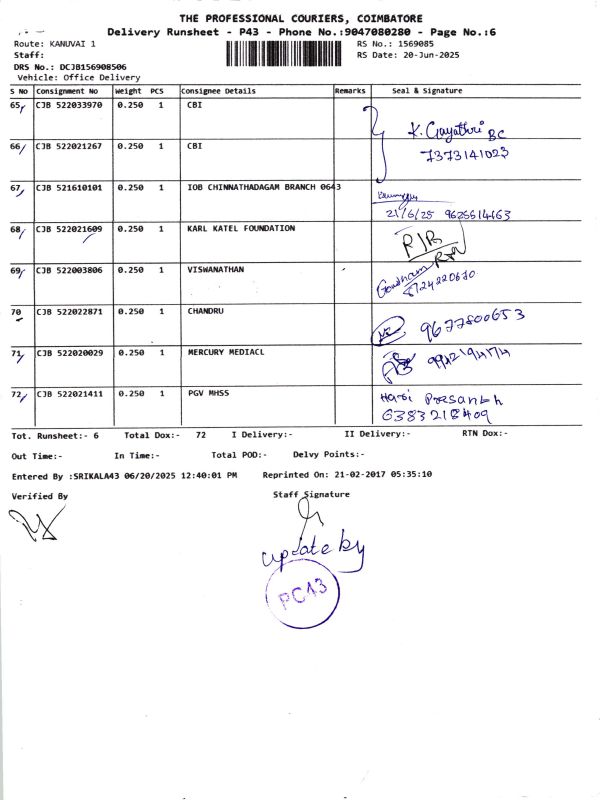 THE PROFESSIONAL COURIERS, COIMBATORE
Delivery Runsheet - P43 - Phone No.:9047080280 - Page No.:6
Route: KANUVAI 1
RS No.: 1569085
Staff:
RS Date: 20-Jun-2025
DRS No.: DCJB156908506
Vehicle: Office Delivery
S No Consignment No Weight PCS Consignee Details Remarks Seal & Signature
65 CJB 522033970 0.250 1 CBI
K. Gayathri BC
7373141023
66 CJB 522021267 0.250 1 CBI
67 CJB 521610101 0.250 1 IOB CHINNATHADAGAM BRANCH 0643
21/6/25 9625514163
68 CJB 522021609 0.250 1 KARL KATEL FOUNDATION
69 CJB 522003806 0.250 1 VISWANATHAN
Goutham
8724220680
70 CJB 522022871 0.250 1 CHANDRU
9677800653
71 CJB 522020029 0.250 1 MERCURY MEDIACL
72 CJB 522021411 0.250 1 PGV MHSS
Hari Prasanth
6383218409
Tot. Runsheet:- 6 Total Dox:- 72 I Delivery:- II Delivery:- RTN Dox:-
Out Time:- In Time:- Total POD:- Delvy Points:-
Entered By :SRIKALA43 06/20/2025 12:40:01 PM Reprinted On: 21-02-2017 05:35:10
Verified By Staff Signature
update by
PC43